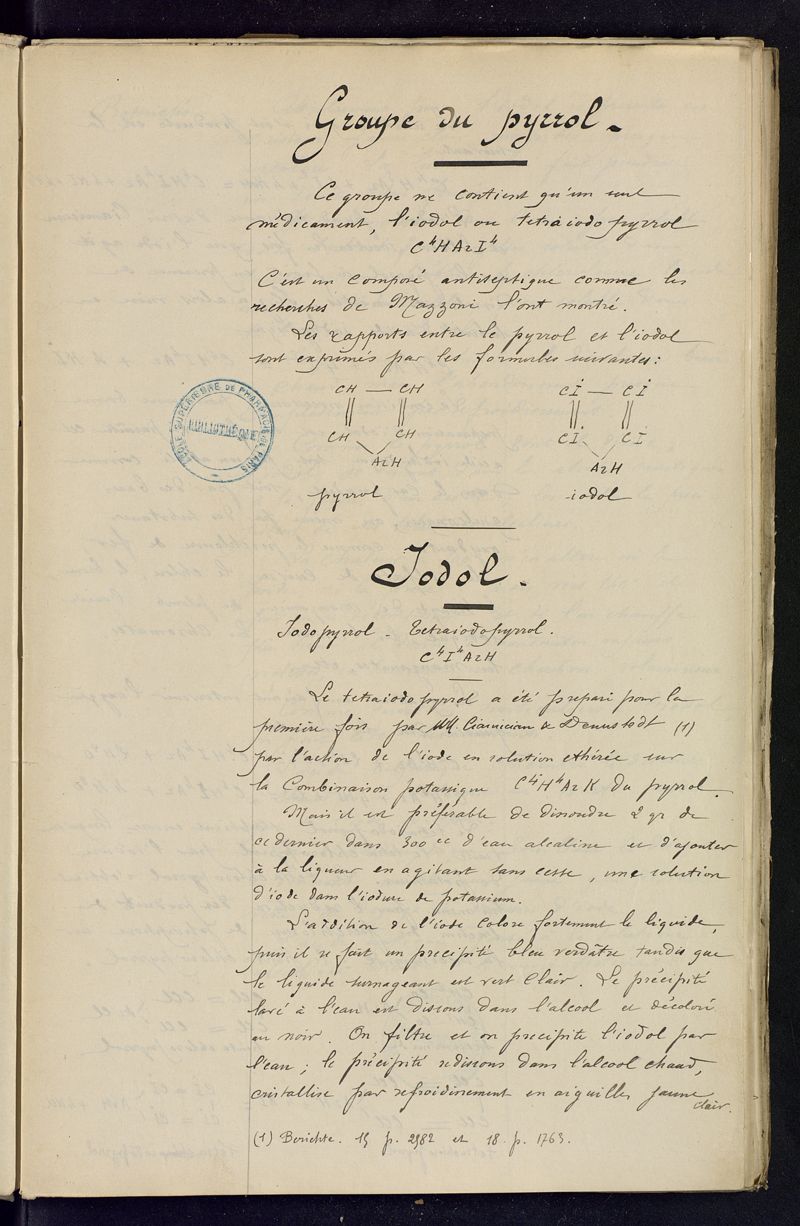 Groupe du pyrrol.
Ce groupe ne contient qu'un seul
médicament, l'iodol ou tetraiodopyrrol
C⁴HAzI⁴
C'est un composé antiseptique comme les
recherches de Mazzoni l'ont montré.
Les rapports entre le pyrrol et l'iodol
sont exprimés par les formules suivantes :
CH — CH CI — CI
CH CH CI CI
AzH AzH
pyrrol iodol
ECOLE SUPERIEURE DE PHARMACIE DE PARIS
BIBLIOTHÈQUE
Iodol.
Iodopyrrol - Tetraiodopyrrol.
C⁴I⁴AzH
Le tetraiodopyrrol a été préparé pour la
première fois par MM. Ciamician & Dennstedt (1)
par l'action de l'iode en solution éthérée sur
la combinaison potassique C⁴H⁴AzK du pyrrol.
Mais il est préférable de dissoudre 2 gr de
ce dernier dans 300 cc d'eau alcaline et d'ajouter
à la liqueur en agitant sans cesse, une solution
d'iode dans l'iodure de potassium.
L'addition de l'iode colore fortement le liquide,
puis il se fait un précipité bleu verdâtre tandis que
le liquide surnageant est vert clair. Le précipité
lavé à l'eau est dissous dans l'alcool et décoloré
au noir. On filtre et on precipite l'iodol par
l'eau ; le précipité redissous dans l'alcool chaud,
cristallise par refroidissement en aiguilles jaune
clair.
(1) Berichte. 15 p. 2582 et 18. p. 1763.